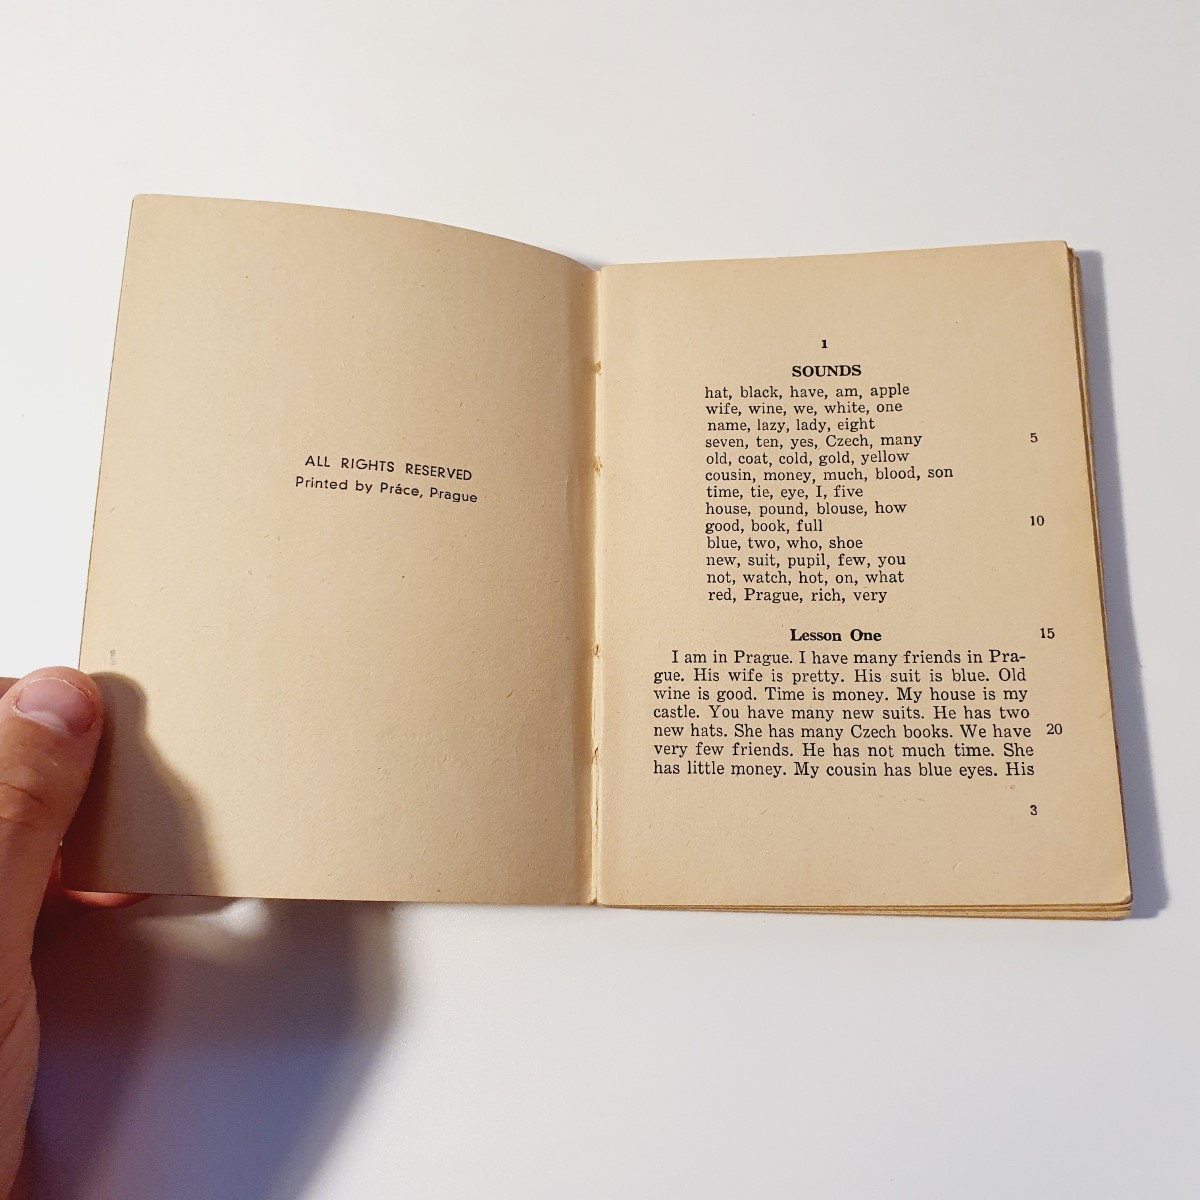 ALL RIGHTS RESERVED
Printed by Práce, Prague
1
SOUNDS
hat, black, have, am, apple
wife, wine, we, white, one
name, lazy, lady, eight
seven, ten, yes, Czech, many 5
old, coat, cold, gold, yellow
cousin, money, much, blood, son
time, tie, eye, I, five
house, pound, blouse, how
good, book, full 10
blue, two, who, shoe
new, suit, pupil, few, you
not, watch, hot, on, what
red, Prague, rich, very
Lesson One 15
I am in Prague. I have many friends in Pra-
gue. His wife is pretty. His suit is blue. Old
wine is good. Time is money. My house is my
castle. You have many new suits. He has two
new hats. She has many Czech books. We have 20
very few friends. He has not much time. She
has little money. My cousin has blue eyes. His
3